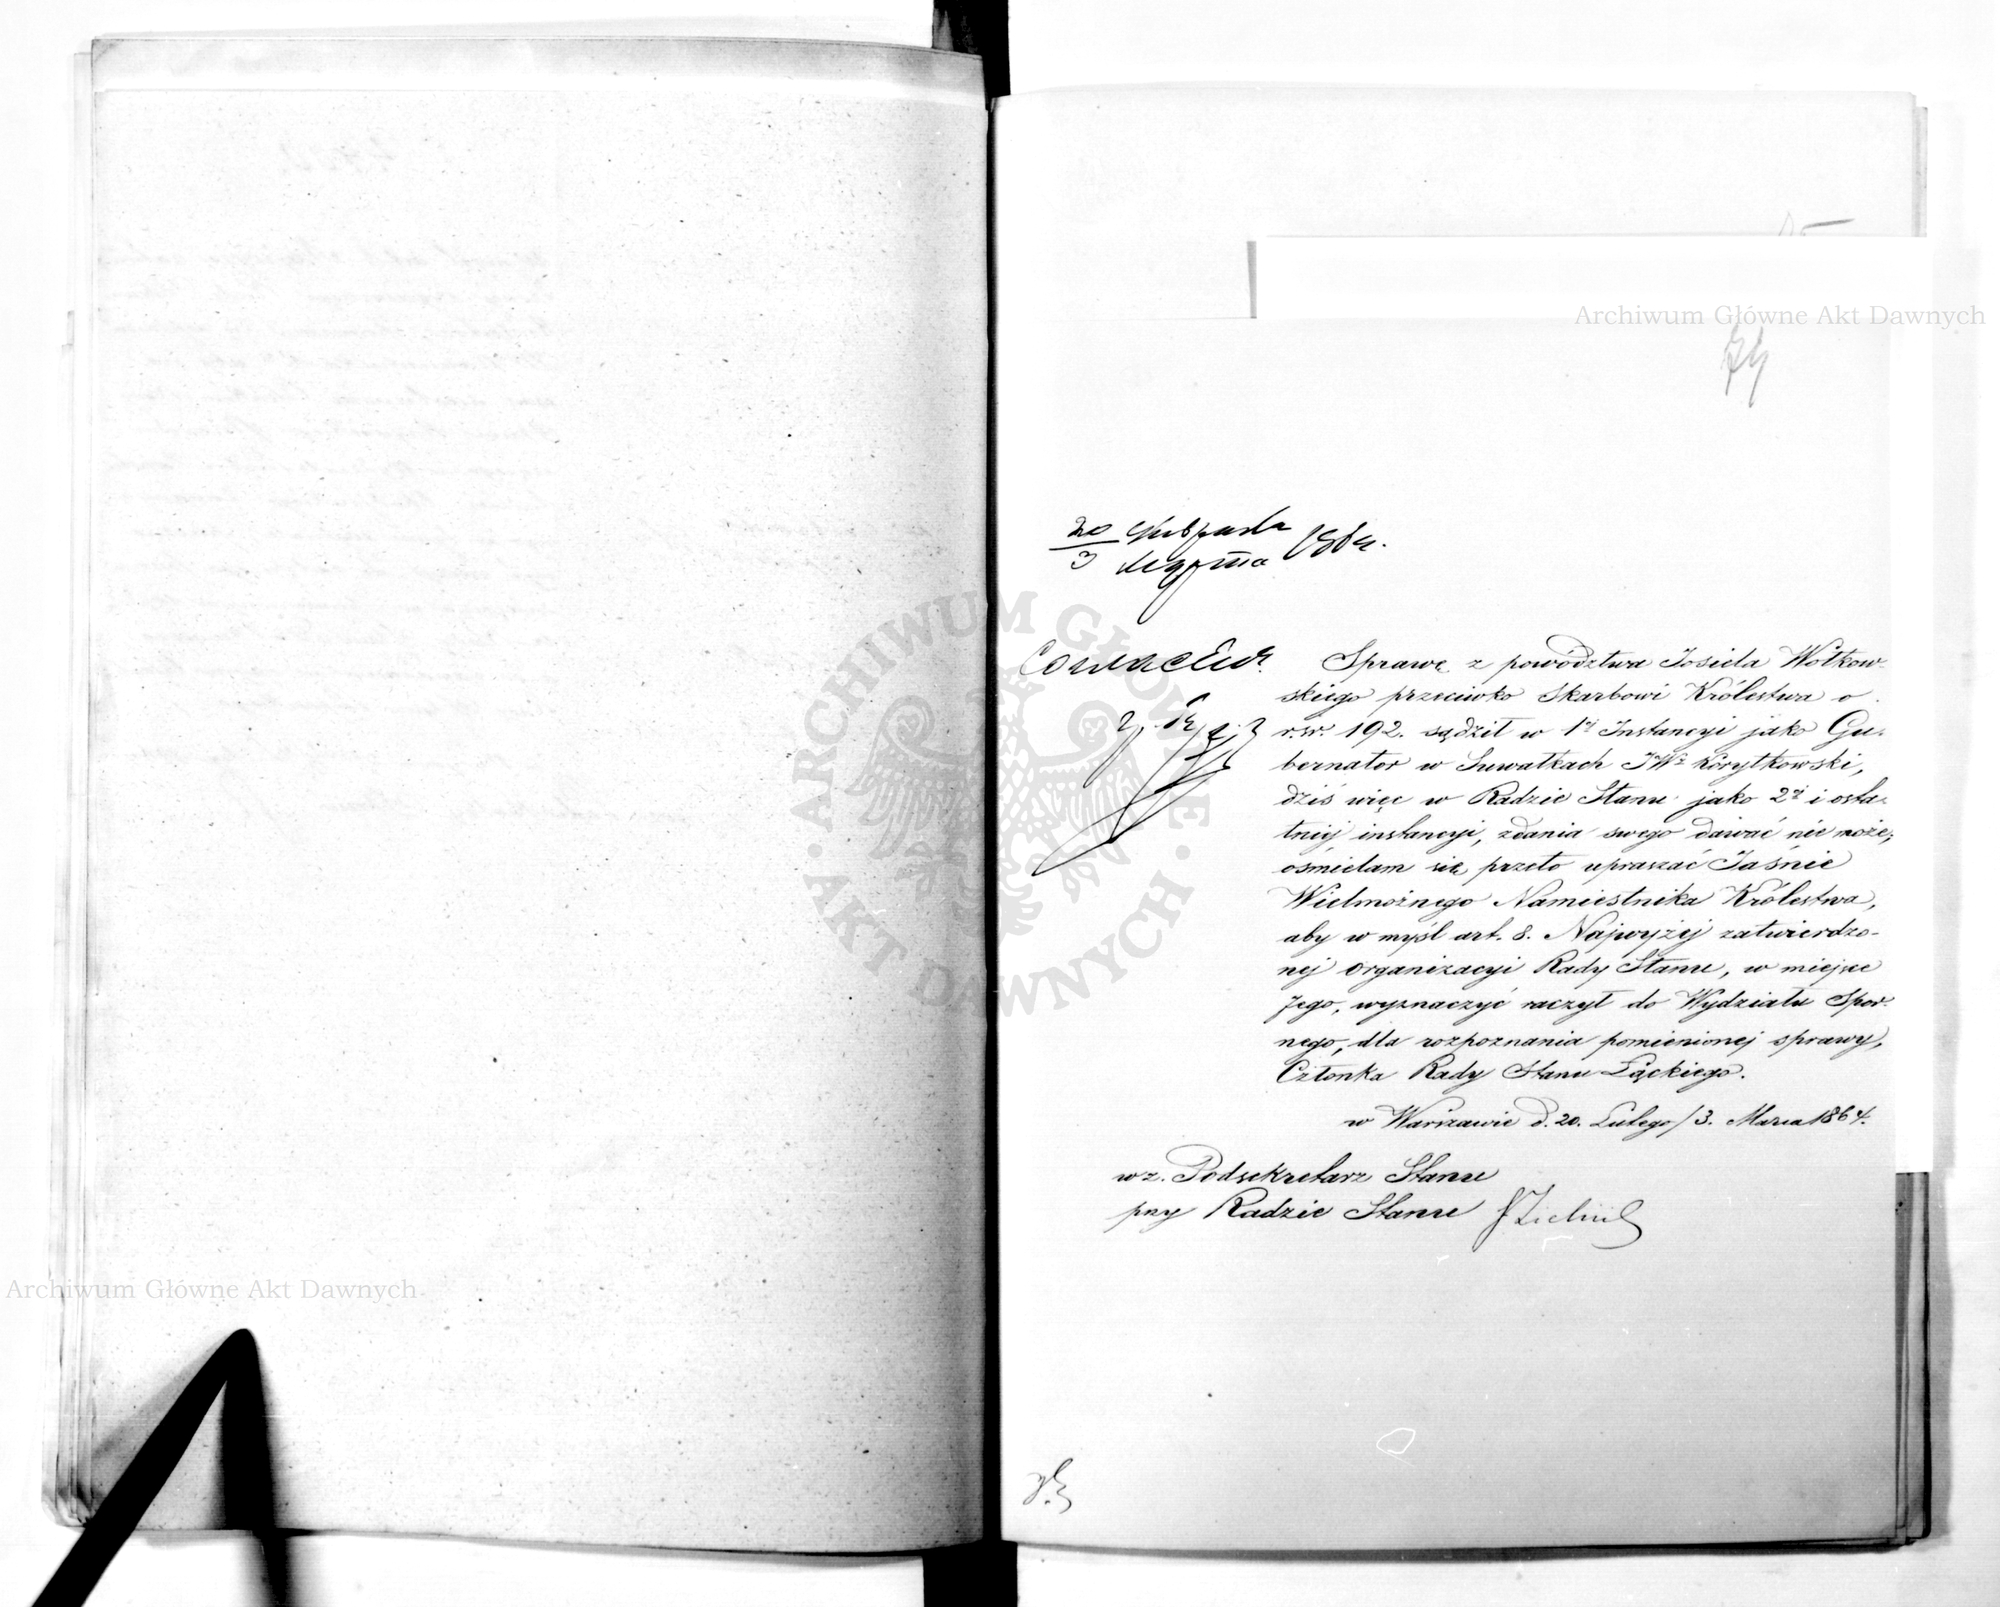 74
20
3
1864.
Согласенъ.
Sprawę z powództwa Josiela Wołkow-
skiego przeciwko Skarbowi Królestwa o
r.sr. 192. sądził w 1éj Instancyi jako Gu-
bernator w Suwałkach JWny Korytkowski,
dziś więc w Radzie Stanu jako 2éj i osta-
tniéj instancyi, zdania swego dawać nie może,
ośmielam się przeto upraszać Jaśnie
Wielmożnego Namiestnika Królestwa,
aby w myśl art. 8. Najwyżéj zatwierdzo-
néj organizacyi Rady Stanu, w miejsce
Jego, wyznaczyć raczył do Wydziału Spor-
nego, dla rozpoznania pomienionéj sprawy,
Członka Rady Stanu Łąckiego.
w Warszawie d. 20. Lutego/3. Marca 1864.
wz. Podsekretarz Stanu
przy Radzie Stanu
Archiwum Główne Akt Dawnych
Archiwum Główne Akt Dawnych
ARCHIWUM GŁÓWNE · AKT DAWNYCH ·